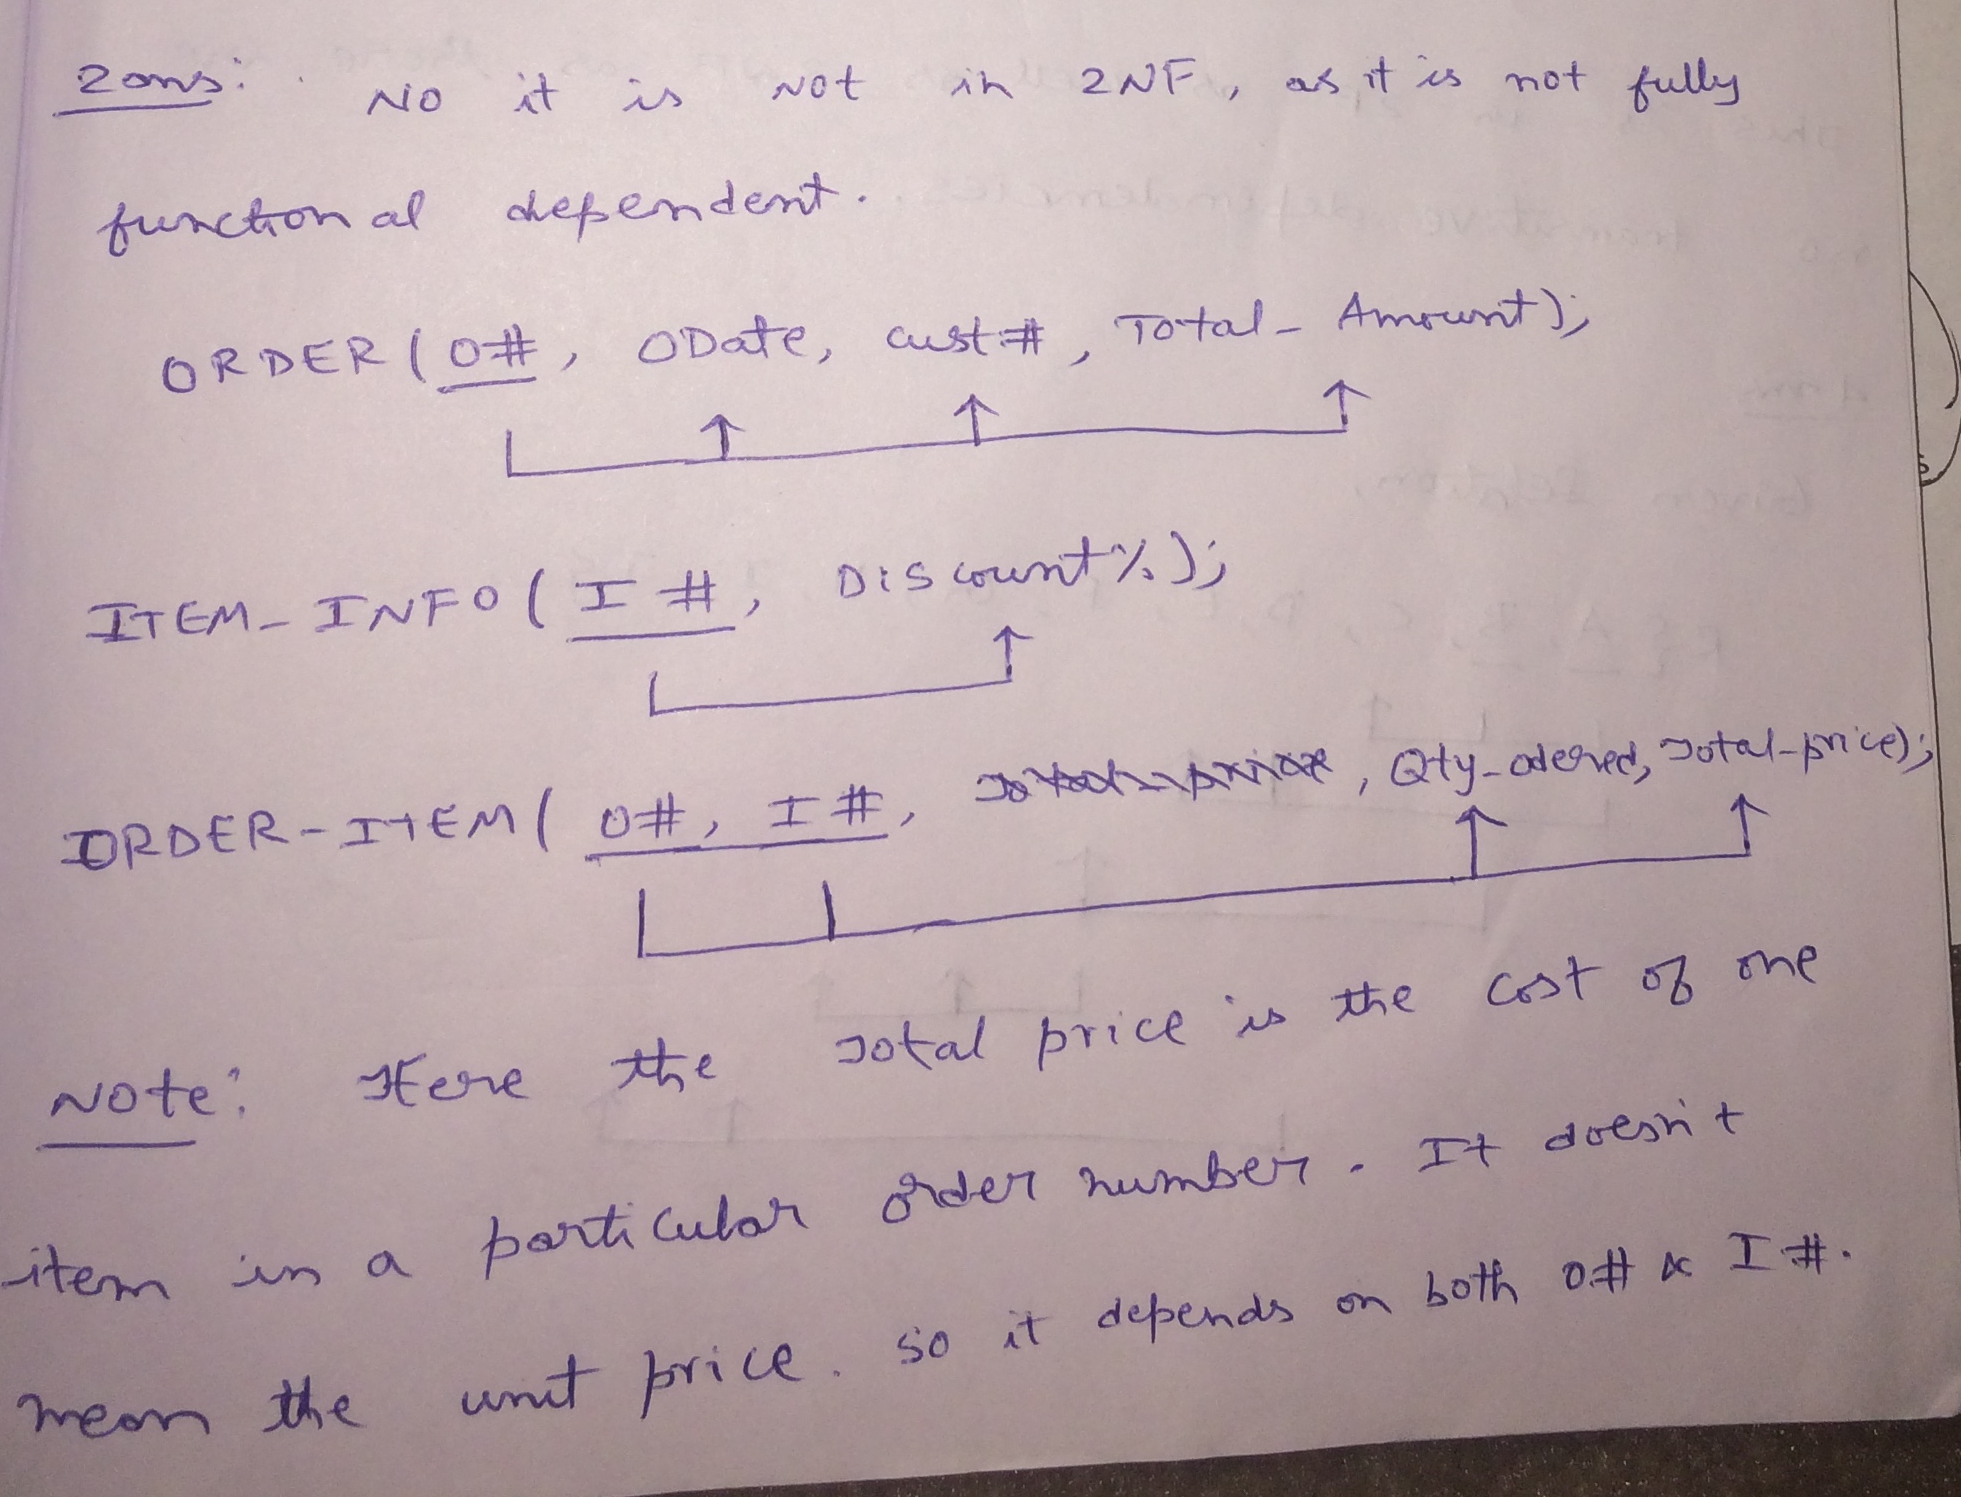 2ans: No it is Not in 2NF, as it is not fully
functional dependent.
ORDER (O#, ODate, cust#, Total-Amount);
ITEM-INFO (I#, Discount%);
ORDER-ITEM (O#, I#, Total-price, Qty-odered, Total-price);
Note: Here the Total price is the cost of one
item in a particular order number. It doesn't
mean the unit price. so it depends on both O# & I#.